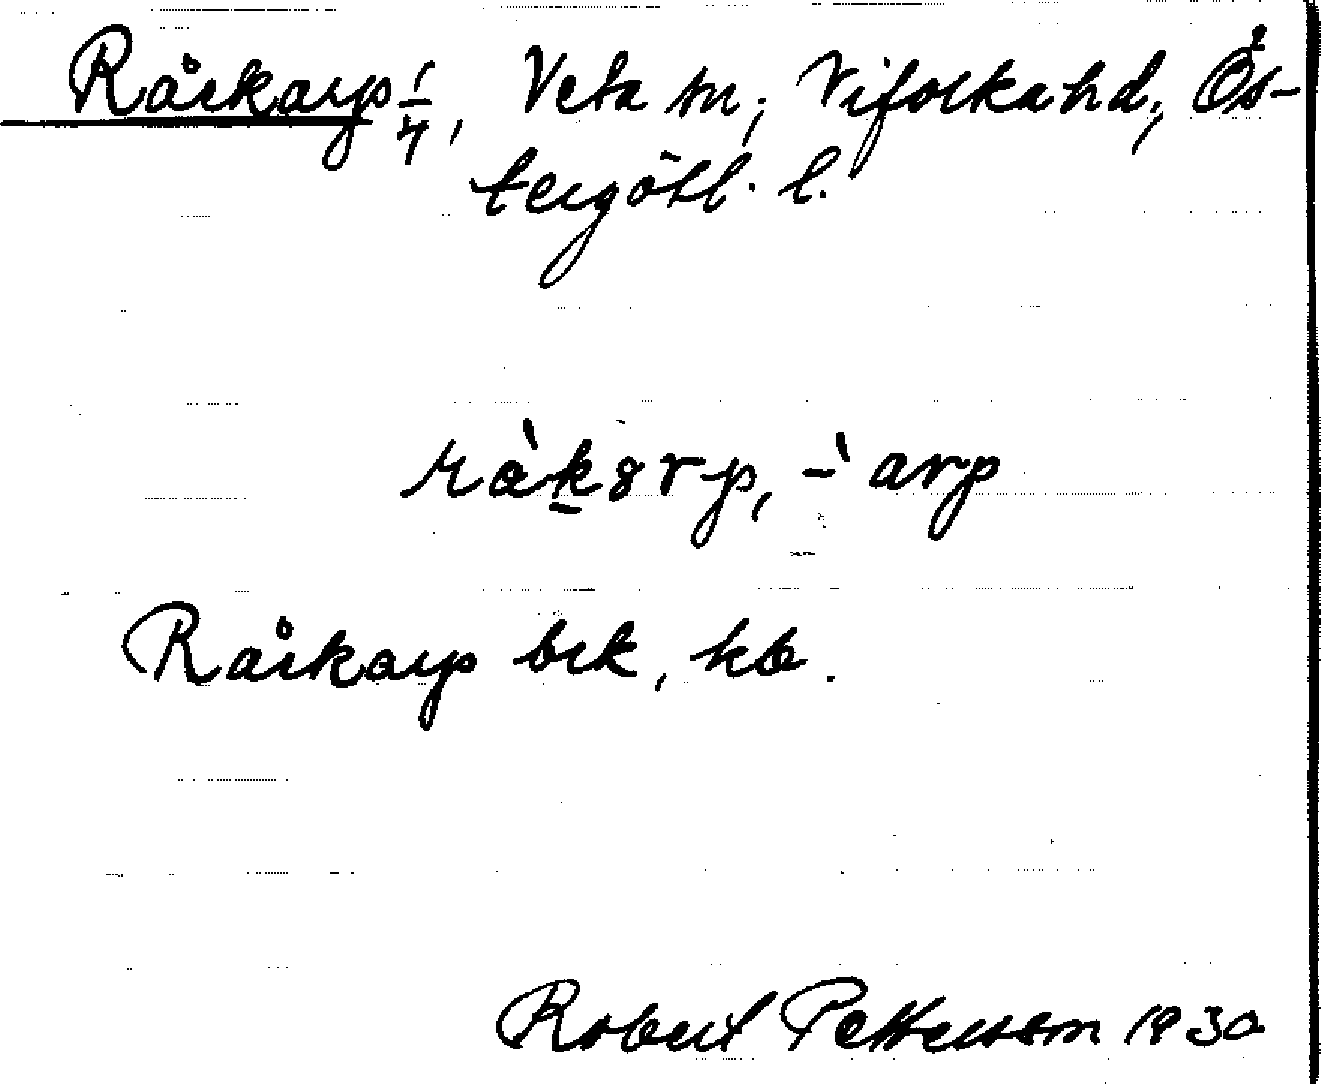 Råckarp 1/4, Veta sn, Vifolka hd, Ös-
tergötl. l.
råkərp, -̀ arp
Råckarp kb.
Robert Pettersson 1930